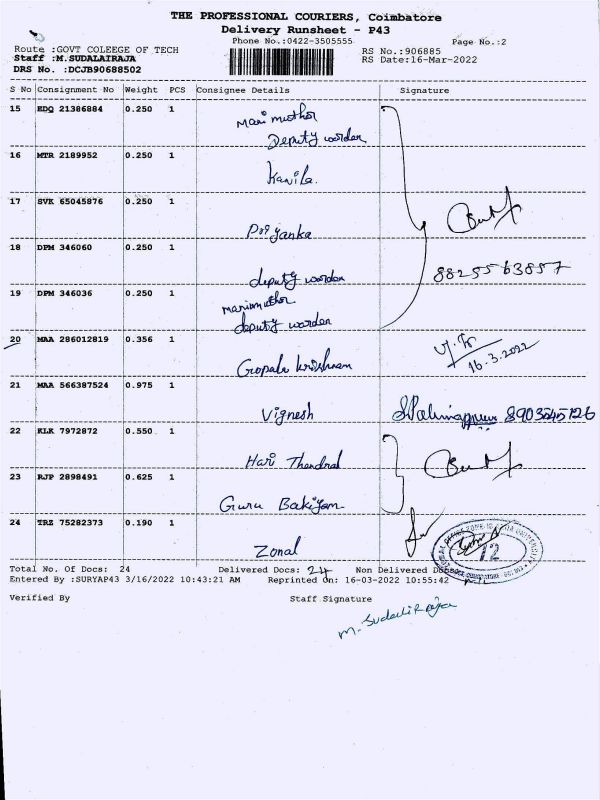 THE PROFESSIONAL COURIERS, Coimbatore
Delivery Runsheet - P43
Phone No.:0422-3505555
Page No.:2
Route :GOVT COLEEGE OF TECH
RS No.:906885
Staff :M.SUDALAIRAJA
RS Date:16-Mar-2022
DRS No. :DCJB90688502
S No Consignment No Weight PCS Consignee Details Signature
15 EDQ 21386884 0.250 1
Mari muthu
Deputy warden
16 MTR 2189952 0.250 1
Kavila.
17 SVK 65045876 0.250 1
Priyanka
18 DPM 346060 0.250 1
deputy warden
8825563857
19 DPM 346036 0.250 1
marimuthu
deputy warden
20 MAA 286012819 0.356 1
Gopala krishnan
16.3.2022
21 MAA 566387524 0.975 1
Vignesh
22 KLK 7972872 0.550 1
Hari Thendral
23 RJP 2898491 0.625 1
Guru Bakiyam
24 TRZ 75282373 0.190 1
Zonal
12
Total No. Of Docs: 24 Delivered Docs: 24 Non Delivered
Entered By :SURYAP43 3/16/2022 10:43:21 AM Reprinted On: 16-03-2022 10:55:42
Verified By Staff Signature
M. Sudalai Raja